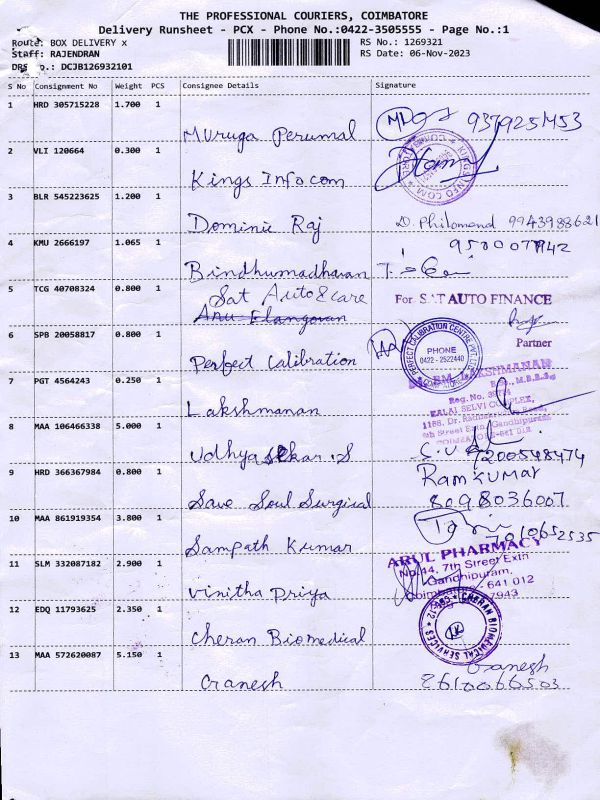 THE PROFESSIONAL COURIERS, COIMBATORE
Delivery Runsheet - PCX - Phone No.:0422-3505555 - Page No.:1
Route: BOX DELIVERY x
RS No.: 1269321
Staff: RAJENDRAN
RS Date: 06-Nov-2023
DRS No.: DCJB126932101
S No Consignment No Weight PCS Consignee Details Signature
1 HRD 305715228 1.700 1
Muruga Perumal
2 VLI 120664 0.300 1
Kings Infocom
3 BLR 545223625 1.200 1
Dominic Raj D. Philomend 9943988621
4 KMU 2666197 1.065 1
Bindhumadhavan
5 TCG 40708324 0.800 1
Sat Auto & care
Anu Elangovan
For SAT AUTO FINANCE
Partner
6 SPB 20058817 0.800 1
Perfect Calibration
PERFECT CALIBRATION CENTRE PVT. LTD.
PHONE
0422 - 2522440
7 PGT 4564243 0.250 1
Lakshmanan
LAKSHMANAN
M.B.B.S.,
Reg. No.
KALAI SELVI COMPLEX,
8 MAA 106466338 5.000 1
Udhyasekar .S
7200548474
9 HRD 366367984 0.800 1
Save Soul Surgical
Ramkumar
8098036007
10 MAA 861919354 3.800 1
Sampath Kumar
7010652535
11 SLM 332087182 2.900 1
Vinitha Priya
ARUL PHARMACY
No.44, 7th Street Extn
Gandhipuram,
Coimbatore - 641 012
12 EDQ 11793625 2.350 1
Cheran Biomedical
CHERAN BIOMEDICAL SERVICES
13 MAA 572620087 5.150 1
Ganesh
Ganesh
8610066503